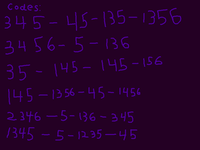 Codes
345-45-135-1356
3456-5-136
35-145-145-156
145-1356-45-1456
2346-5-136-345
1345-5-1235-45